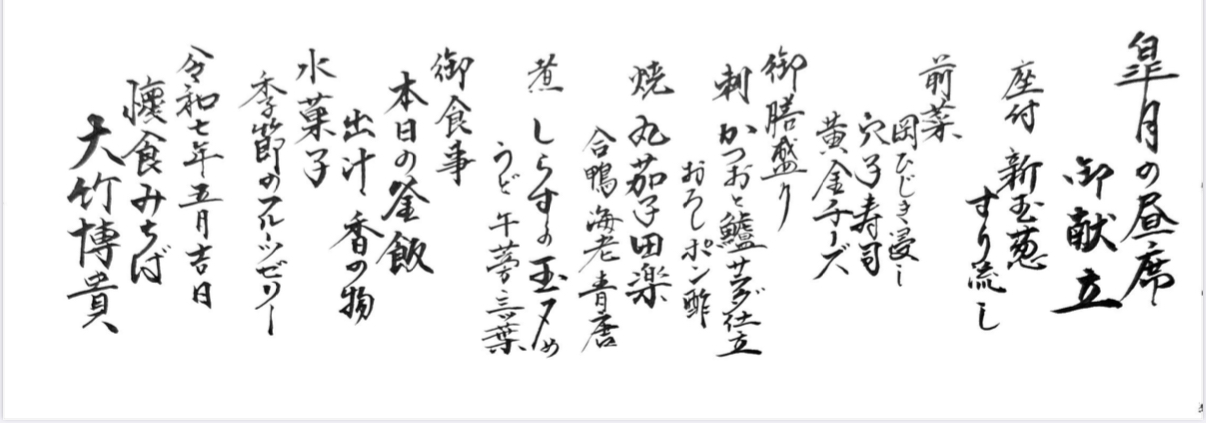 皐月の昼席
御献立
座付 新玉葱
すり流し
前菜
岡ひじき浸し
穴子寿司
黄金チーズ
御膳盛り
刺 かつおと鱸サラダ仕立
おろしポン酢
焼 丸茄子田楽
合鴨 海老 青唐
煮 しらすの玉〆め
うど 牛蒡 三ツ葉
御食事
本日の釜飯
出汁 香の物
水菓子
季節のフルーツゼリー
令和七年五月吉日
懐食みちば
大竹博貴